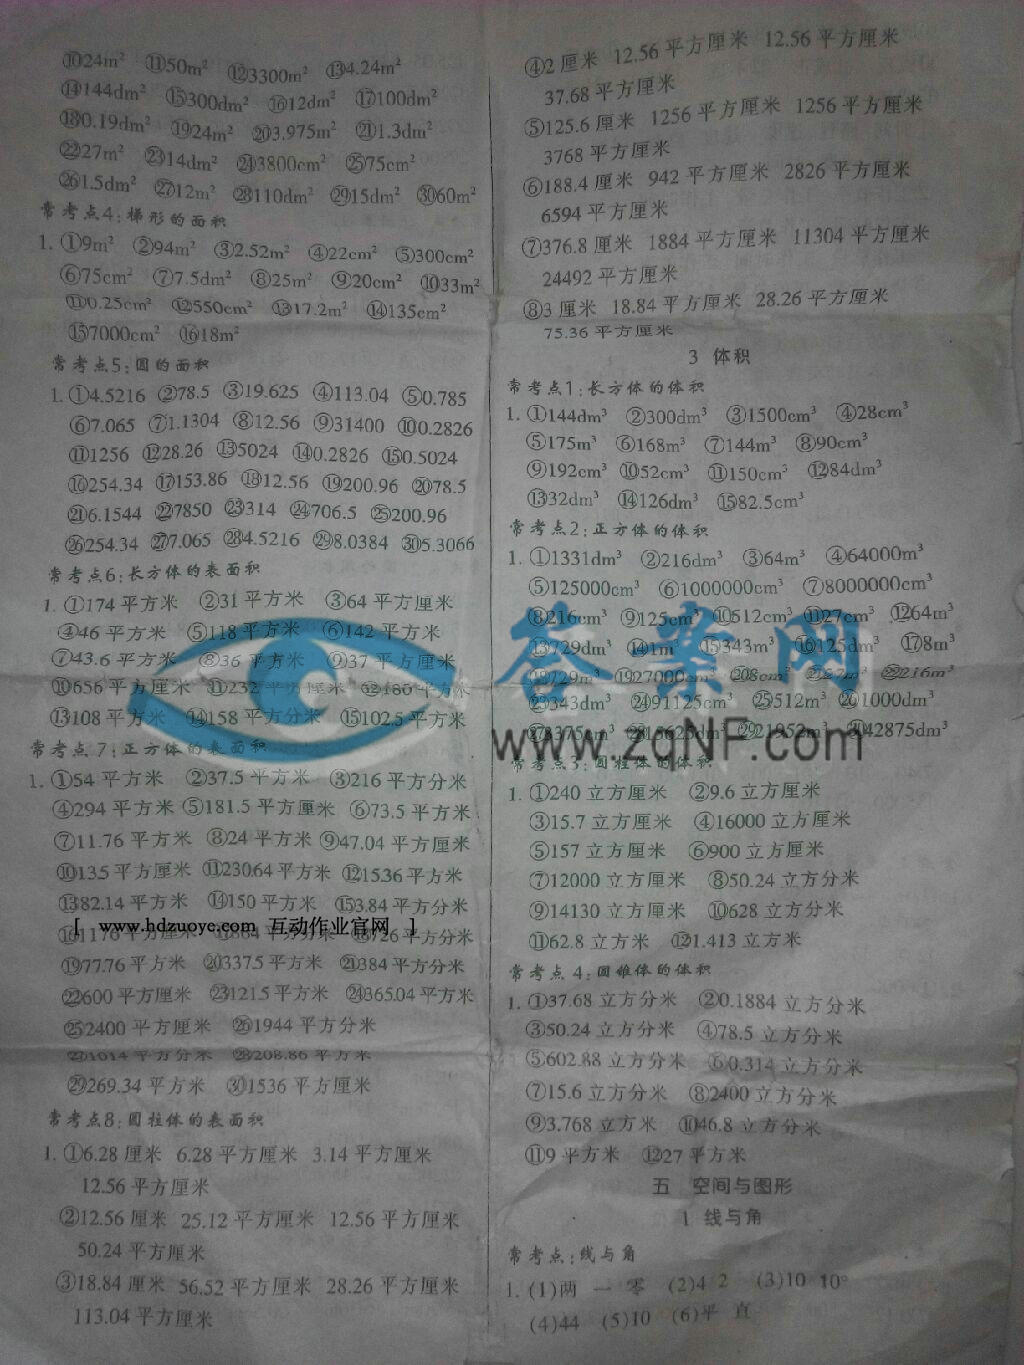 ⑩24m² ⑪50m² ⑫3300m² ⑬4.24m²
⑭144dm² ⑮300dm² ⑯12dm² ⑰100dm²
⑱0.19dm² ⑲24m² ⑳3.975m² ㉑1.3dm²
㉒27m² ㉓14dm² ㉔3800cm² ㉕75cm²
㉖1.5dm² ㉗12m² ㉘110dm² ㉙15dm² ㉚60m²
常考点4:梯形的面积
1. ①9m² ②94m² ③2.52m² ④22cm² ⑤300cm²
⑥75cm² ⑦7.5dm² ⑧25m² ⑨20cm² ⑩33m²
⑪0.25cm² ⑫550cm² ⑬17.2m² ⑭135cm²
⑮7000cm² ⑯18m²
常考点5:圆的面积
1. ①4.5216 ②78.5 ③19.625 ④113.04 ⑤0.785
⑥7.065 ⑦1.1304 ⑧12.56 ⑨31400 ⑩0.2826
⑪1256 ⑫28.26 ⑬5024 ⑭0.2826 ⑮0.5024
⑯254.34 ⑰153.86 ⑱12.56 ⑲200.96 ⑳78.5
㉑6.1544 ㉒7850 ㉓314 ㉔706.5 ㉕200.96
㉖254.34 ㉗7.065 ㉘4.5216 ㉙8.0384 ㉚5.3066
常考点6:长方体的表面积
1. ①174平方米 ②31平方米 ③64平方厘米
④46平方米 ⑤118平方米 ⑥142平方米
⑦43.6平方米 ⑧36平方米 ⑨37平方厘米
⑩656平方厘米 ⑪232平方厘米 ⑫186平方米
⑬108平方米 ⑭158平方分米 ⑮102.5平方米
常考点7:正方体的表面积
1. ①54平方米 ②37.5平方米 ③216平方分米
④294平方米 ⑤181.5平方厘米 ⑥73.5平方米
⑦11.76平方米 ⑧24平方米 ⑨47.04平方厘米
⑩13.5平方厘米 ⑪230.64平方米 ⑫15.36平方米
⑬82.14平方米 ⑭150平方米 ⑮3.84平方分米
[ www.hdzuoye.com 互动作业官网 ]
⑲77.76平方米 ⑳337.5平方米 ㉑384平方分米
㉒600平方厘米 ㉓121.5平方米 ㉔365.04平方米
㉕2400平方厘米 ㉖1944平方分米
㉗1014平方分米 ㉘208.86平方米
㉙269.34平方米 ㉚1536平方厘米
常考点8:圆柱体的表面积
1. ①6.28厘米 6.28平方厘米 3.14平方厘米
12.56平方厘米
②12.56厘米 25.12平方厘米 12.56平方厘米
50.24平方厘米
③18.84厘米 56.52平方厘米 28.26平方厘米
113.04平方厘米
④2厘米 12.56平方厘米 12.56平方厘米
37.68平方厘米
⑤125.6厘米 1256平方厘米 1256平方厘米
3768平方厘米
⑥188.4厘米 942平方厘米 2826平方厘米
6594平方厘米
⑦376.8厘米 1884平方厘米 11304平方厘米
24492平方厘米
⑧3厘米 18.84平方厘米 28.26平方厘米
75.36平方厘米
3 体积
常考点1:长方体的体积
1. ①144dm³ ②300dm³ ③1500cm³ ④28cm³
⑤175m³ ⑥168m³ ⑦144m³ ⑧90cm³
⑨192cm³ ⑩52cm³ ⑪150cm³ ⑫84dm³
⑬32dm³ ⑭126dm³ ⑮82.5cm³
常考点2:正方体的体积
1. ①1331dm³ ②216dm³ ③64m³ ④64000m³
⑤125000cm³ ⑥1000000cm³ ⑦8000000cm³
⑧216cm³ ⑨125cm³ ⑩512cm³ ⑪27cm³ ⑫64m³
⑬729dm³ ⑭1m³ ⑮343m³ ⑯125dm³ ⑰8m³
⑱729m³ ⑲27000cm³ ⑳8cm³ ㉑27m³ ㉒216m³
㉓343dm³ ㉔91125cm³ ㉕512m³ ㉖1000dm³
㉗3375cm³ ㉘15625dm³ ㉙21952m³ ㉚42875dm³
答案网
www.zqNF.com
常考点3:圆柱体的体积
1. ①240立方厘米 ②9.6立方厘米
③15.7立方厘米 ④16000立方厘米
⑤157立方厘米 ⑥900立方厘米
⑦12000立方厘米 ⑧50.24立方分米
⑨14130立方厘米 ⑩628立方分米
⑪62.8立方米 ⑫1.413立方米
常考点4:圆锥体的体积
1. ①37.68立方分米 ②0.1884立方分米
③50.24立方分米 ④78.5立方分米
⑤602.88立方分米 ⑥0.314立方分米
⑦15.6立方分米 ⑧2400立方分米
⑨3.768立方米 ⑩46.8立方分米
⑪9平方米 ⑫27平方米
五 空间与图形
1 线与角
常考点:线与角
1. (1)两 一 零 (2)4 2 (3)10 10°
(4)44 (5)10 (6)平 直